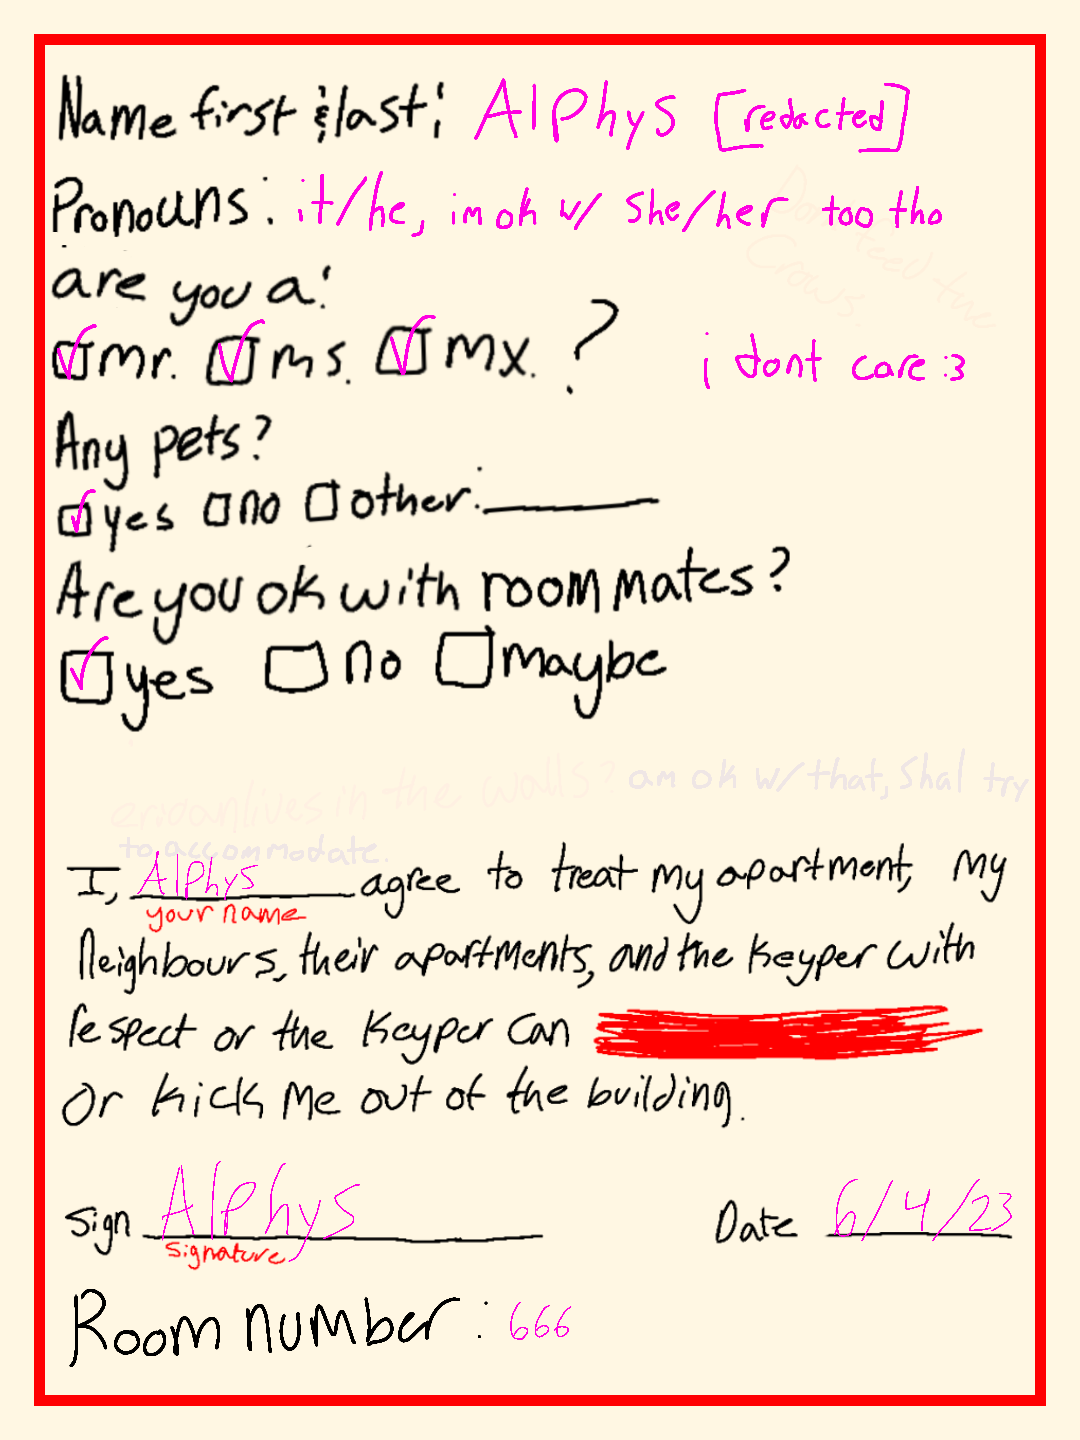 Name first & last: Alphys [redacted]
Pronouns: it/he, im ok w/ she/her too tho
Dont feed the
Crows.
are you a:
mr. ms. mx. ?
i dont care :3
Any pets?
yes no other:
Are you ok with roommates?
yes no maybe
lives in the walls? am ok w/ that, Shal try
to accommodate.
I, Alphys agree to treat my apartment, my
your name
Neighbours, their apartments, and the Keyper with
respect or the Keyper Can
Or Kick Me out of the building.
Sign Alphys Date 6/4/23
signature
Room number: 666